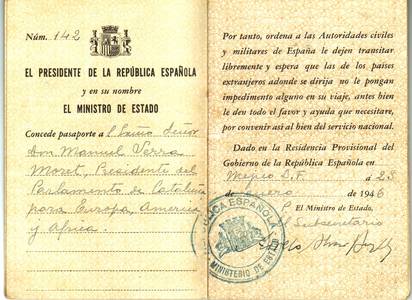 Núm. 142
EL PRESIDENTE DE LA REPÚBLICA ESPAÑOLA
y en su nombre
EL MINISTRO DE ESTADO
Concede pasaporte a l Exmo. Señor
Don Manuel Serra
Moret, Presidente del
Parlamento de Cataluña
para Europa, America
y Africa.
Por tanto, ordena a las Autoridades civiles
y militares de España le dejen transitar
libremente y espera que las de los países
extranjeros adonde se dirija no le pongan
impedimento alguno en su viaje, antes bien
le den todo el favor y ayuda que necesitare,
por convenir así al bien del servicio nacional.
Dado en la Residencia Provisional del
Gobierno de la República Española en
Mejico D.F. a 23
de Enero de 1946
P. El Ministro de Estado,
El Subsecretario
REPUBLICA ESPAÑOLA
MINISTERIO DE ESTADO